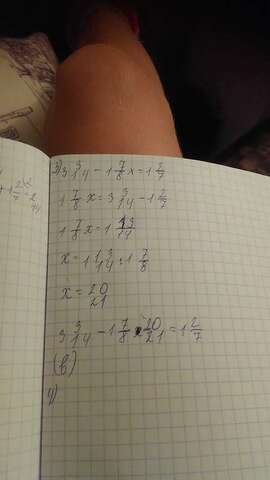 3) 3 3/14 - 1 7/8 x = 1 2/7
1 7/8 x = 3 3/14 - 1 2/7
1 7/8 x = 1 13/14
x = 1 13/14 : 1 7/8
x = 20/21
3 3/14 - 1 7/8 * 20/21 = 1 2/7
(в)
4)